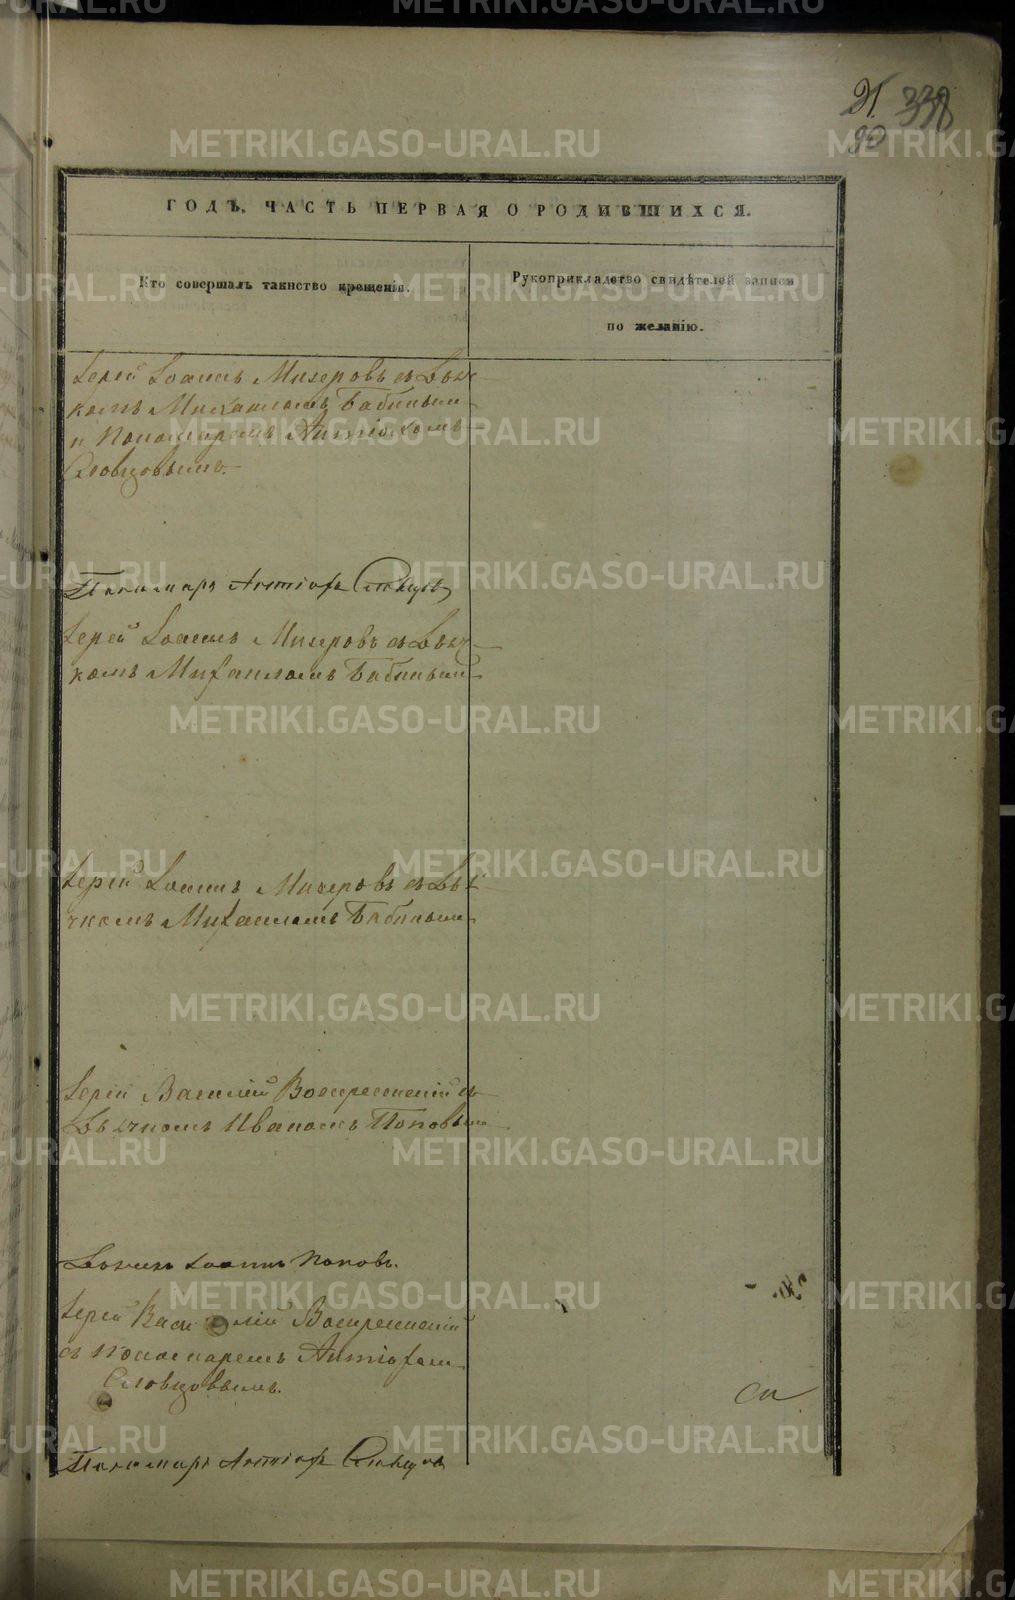 21. 338
90
ГОДЪ. ЧАСТЬ ПЕРВАЯ О РОДИВШИХСЯ.
Кто совершалъ таинство крещенія.
Рукоприкладство свидѣтелей записи
по желанію.
Іерей Іоаннъ Мизеровъ съ Дьяч-
комъ Михаиломъ Бабинымъ
и Пономаремъ Антіохомъ
Словцовымъ.
Пономарь Антіохъ Словцовъ
Іерей Іоаннъ Мизеровъ съ Дьяч-
комъ Михаиломъ Бабинымъ
Іерей Іоаннъ Мизеровъ съ Дья-
чкомъ Михаиломъ Бабинымъ
Іерей Василій Воскресенскій съ
Дьячкомъ Иваномъ Поповымъ
Дьячекъ Іоаннъ Поповъ.
Іерей Василій Воскресенскій
съ Пономаремъ Антіохомъ
Словцовымъ.
Пономарь Антіохъ Словцовъ
METRIKI.GASO-URAL.RU